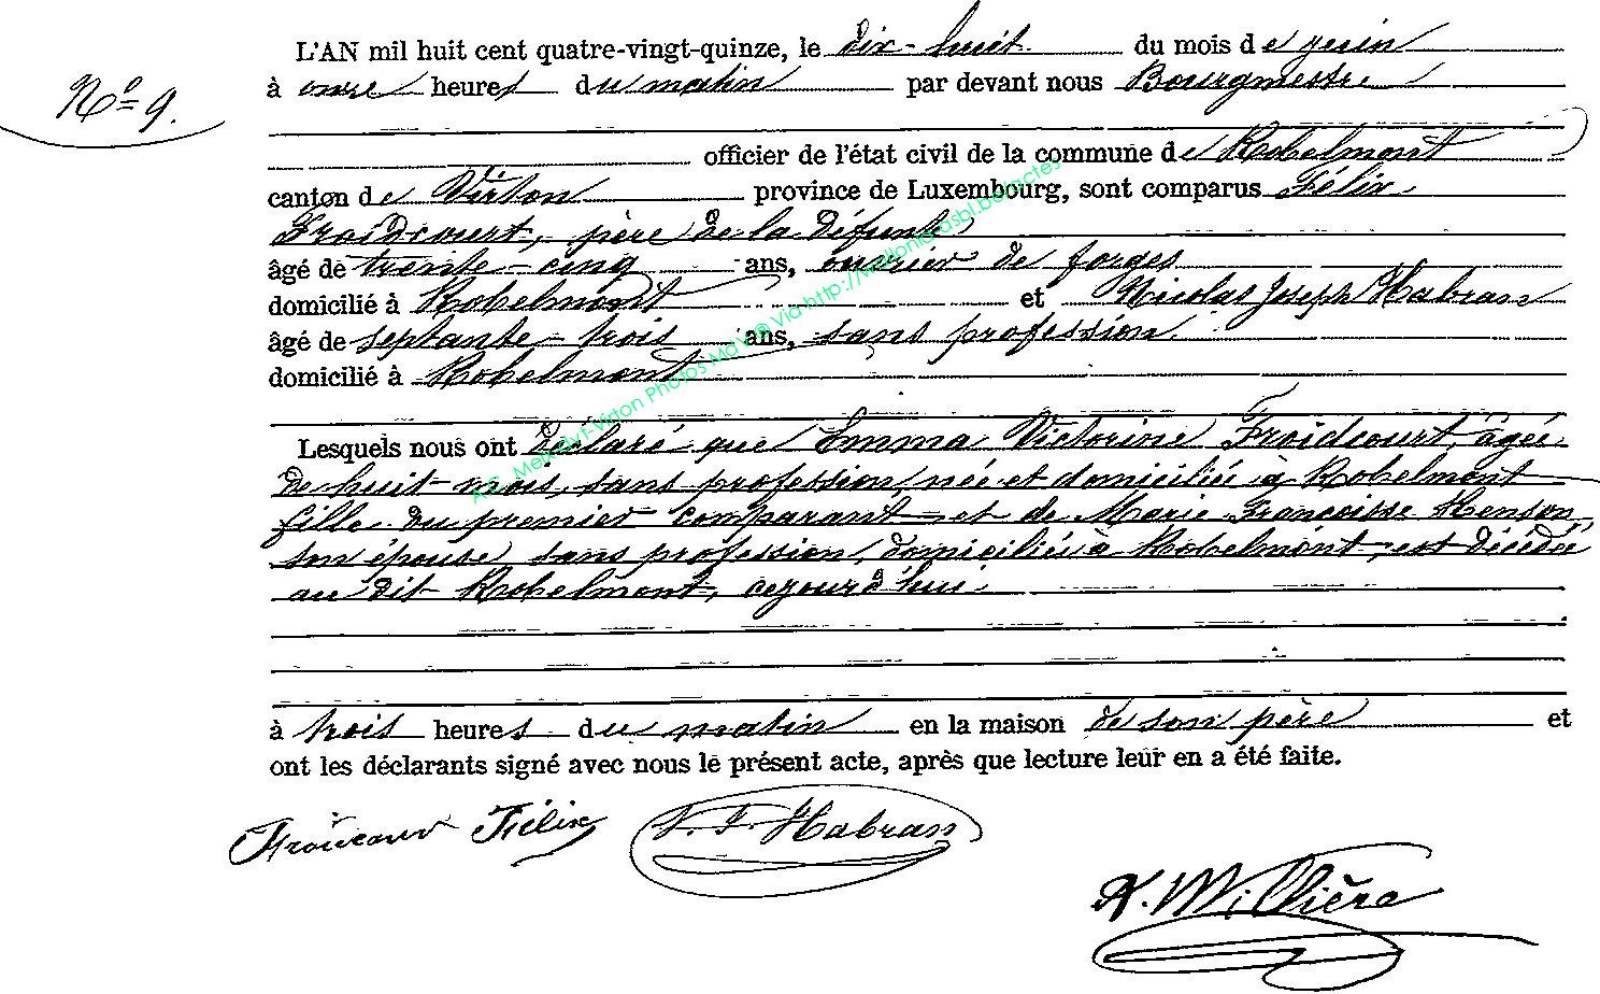 L'AN mil huit cent quatre-vingt-quinze, le dix-huit du mois de juin
N° 9.
à onze heures du matin par devant nous Bourgmestre
officier de l'état civil de la commune de Robelmont
canton de Virton province de Luxembourg, sont comparus Félix
Froidcourt, père de la défunte
âgé de trente-cinq ans, ouvrier de forges
domicilié à Robelmont et Nicolas Joseph Habran
âgé de septante-trois ans, sans profession
domicilié à Robelmont
Lesquels nous ont déclaré que Emma Victorine Froidcourt, âgée
de huit mois, sans profession, née et domiciliée à Robelmont
fille du premier comparant et de Marie Françoisse Henson
son épouse, sans profession, domiciliée à Robelmont, est décédée
au dit Robelmont, cejourd'hui
à trois heures du matin en la maison de son père et
ont les déclarants signé avec nous le présent acte, après que lecture leur en a été faite.
Félix
N. J. Habran
Millière
A.C. Meix-dvt-Virton Photos MdV © Via http://wallonia-asbl.be/actes